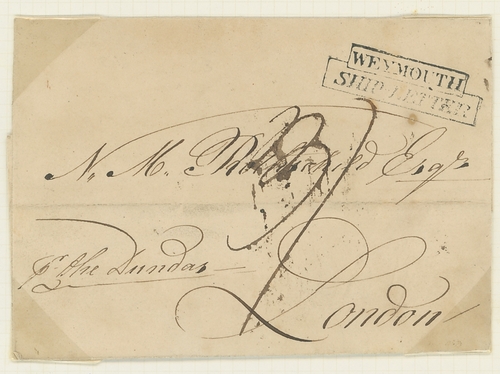 WEYMOUTH
SHIP LETTER
N. M. Rothschild Esqr
pr the Dundas
London